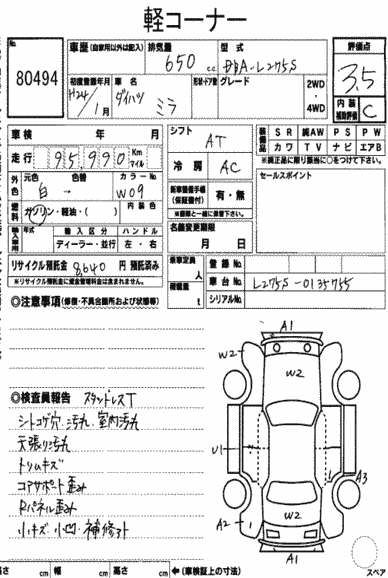 軽コーナー
No. 80494
車歴(自家用以外は記入) 排気量 650 c.c. 型式 DBA-L275S 評価点 3.5
初度登録年月 H24/1月 車名 ダイハツ ミラ 形状・ドア数 グレード 2WD・4WD 内装補助評価 C
車検 年 月 シフト AT 装備品 SR 純AW PS PW
カワ TV ナビ エアB
走行 95,990 Km マイル 冷房 AC ※純正品に限り該当に○をつけて下さい。
外色 元色 白 → 色替 カラーNo. W09 セールスポイント
燃料 ガソリン・軽油・( ) 内装色 新車整備手帳(保証書付) 有・無
※書類と一緒に保管下さい。
輸入車用 年式 輸入区分 ハンドル 名義変更期限
ディーラー・並行 左・右 月 日
リサイクル預託金 8,640 円 預託済み 乗車定員 人 登録No.
※リサイクル預託金に資金管理料金は含まれません。 積載量 t 車台No. L275S-0135755
◎注意事項(修復・不具合箇所および状態等) シリアルNo.
◎検査員報告 スタッドレスT
シートコゲ穴、汚れ、室内汚れ
天張り汚れ
トリムキズ
コアサポート歪み
Rパネル歪み
小キズ 小凹 補修アト
A1
W2
W2
U1
1
A3
A2
1
W2
A1
長さ cm 幅 cm 高さ cm ←(車検証上の寸法)
スペア